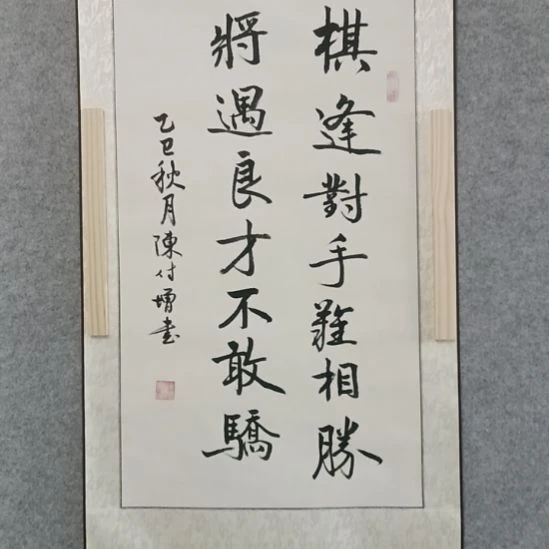 棋逢對手難相勝
將遇良才不敢驕
乙巳秋月陳付增書